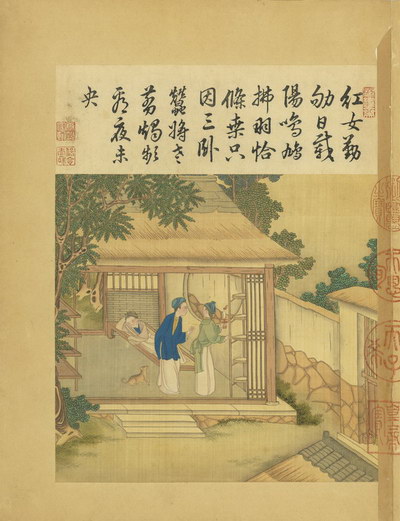 紅女勤
劬日載
陽鳴鳩
拂羽恰
條桑只
因三卧
蠶將老
剪燭頻
看夜未
央